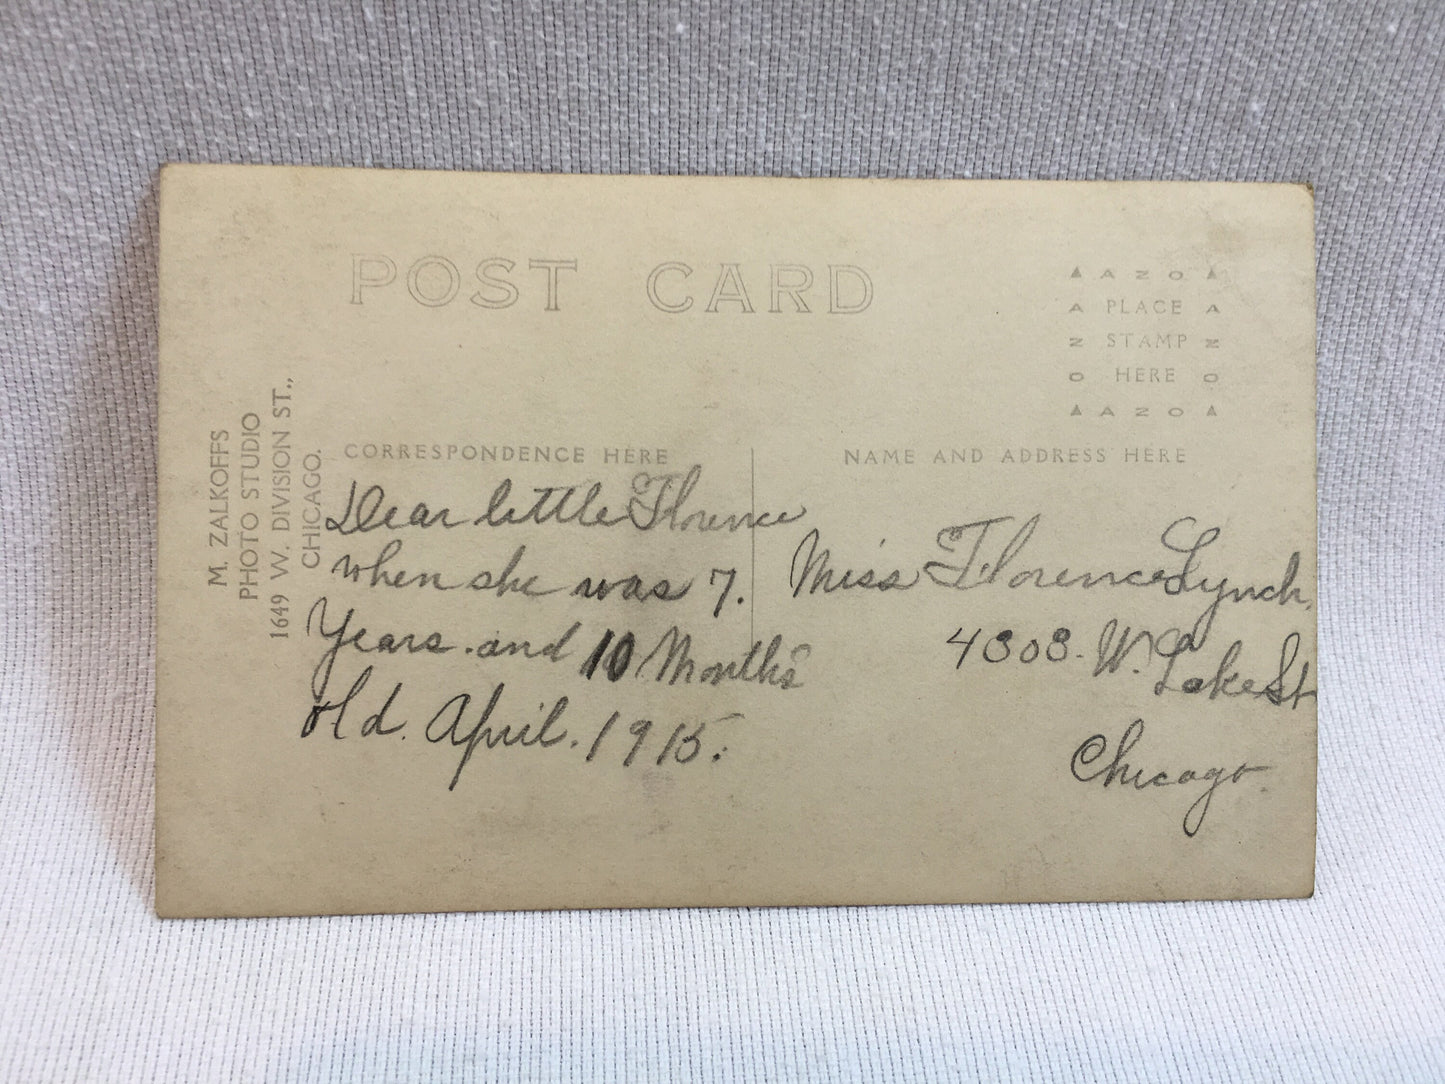 POST CARD
▲ AZO ▲
A PLACE A
Z STAMP Z
O HERE O
▲ AZO ▲
M. ZALKOFFS
PHOTO STUDIO
1649 W. DIVISION ST.,
CHICAGO.
CORRESPONDENCE HERE
Dear little Florence
when she was 7.
Years. and 10 Months
old. April. 1915.
NAME AND ADDRESS HERE
Miss Florence Lynch.
4308. W. Lake St
Chicago.